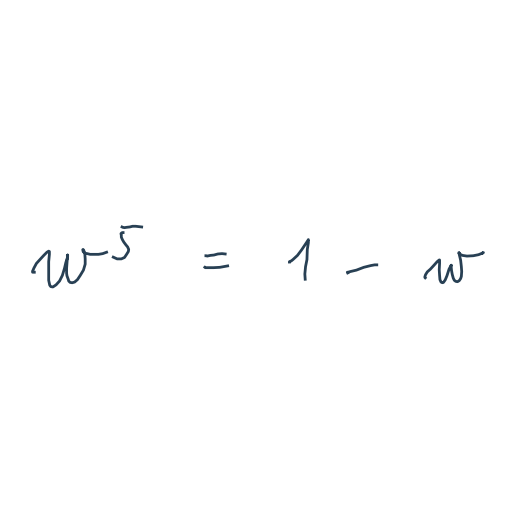 w⁵ = 1 - w